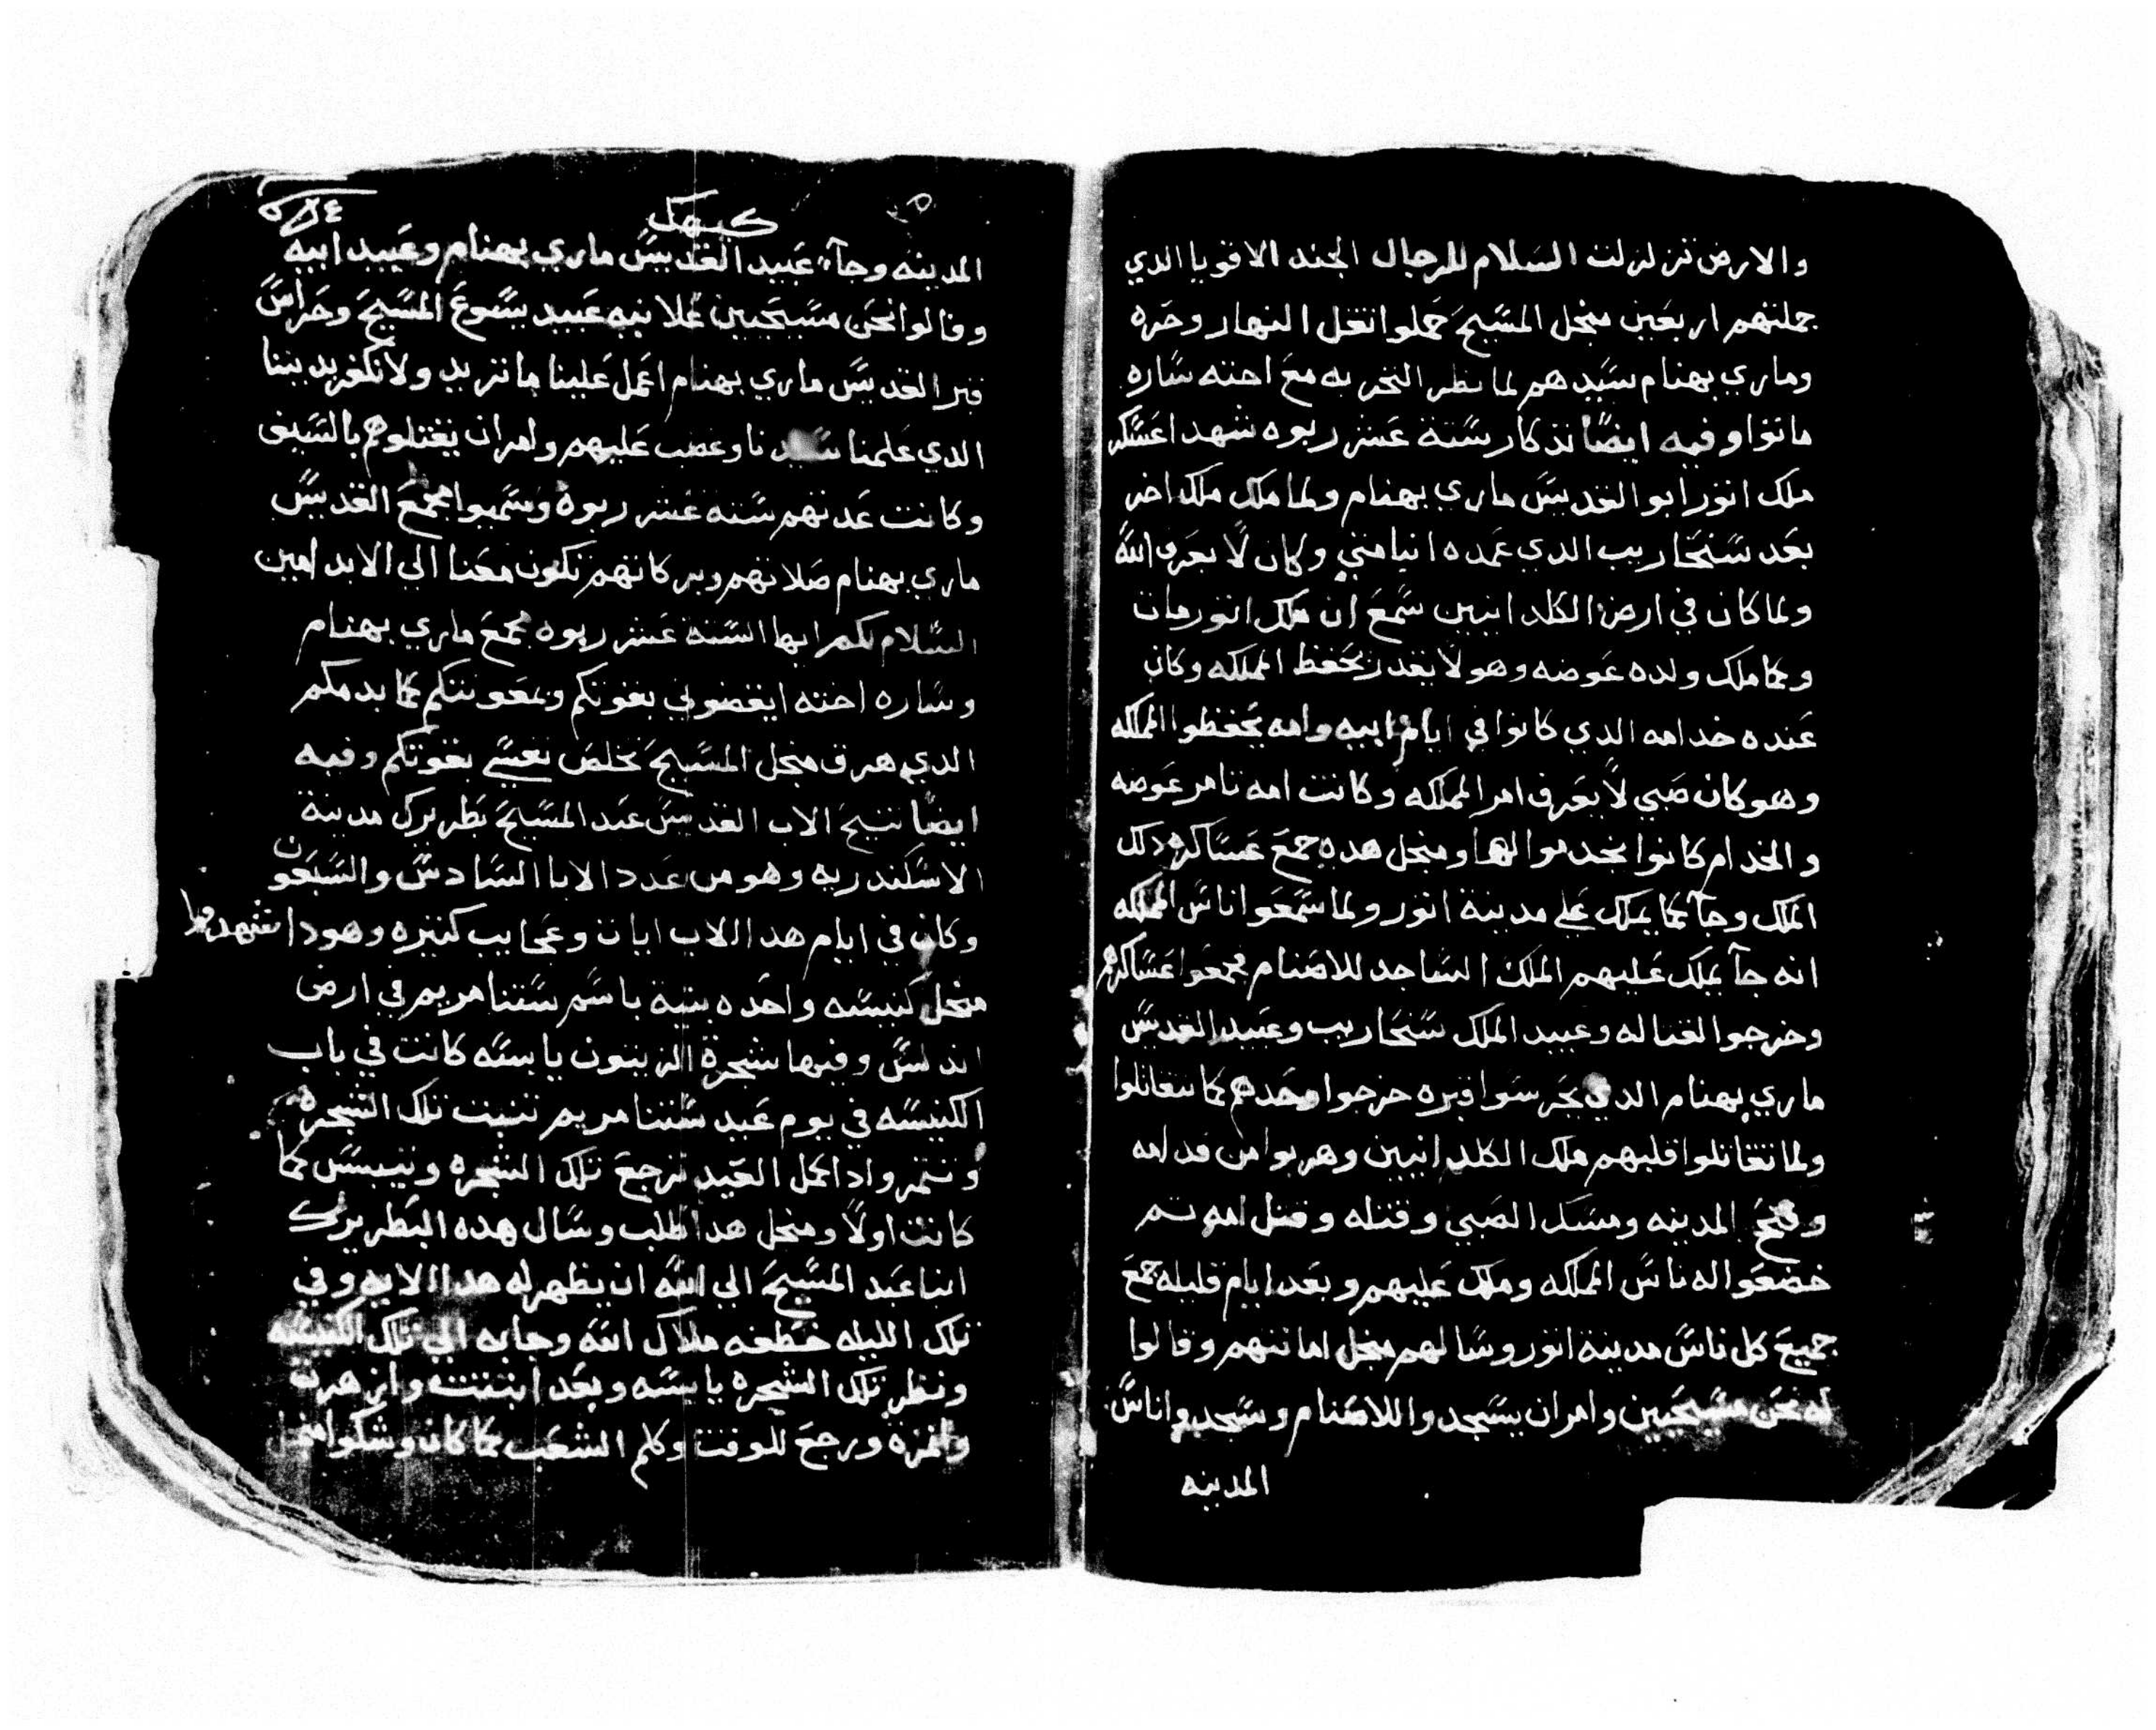 والارض تزلزلت السلام للرجال الجند الاقويا الدي
جملتهم اربعين منجل المسيح حملوا تقل النهار وحره
وماري بهنام سيدهم لما نظر التخربه مع اخته ساره
ماتوا وفيه ايضا تدكار ستة عشر ربوه شهدا عسكر
ملك اتور ابو القديس ماري بهنام ولما ملك ملك اخر
بعد سنحاريب الدي عمده انبا متي وكان لا يعرف الله
ولما كان في ارض الكلدانيين سمع ان ملك اتور مات
وكما ملك ولده عوضه وهو لا يقدر يحفظ المملكه وكان
عنده خدامه الدي كانوا في ايام ابيه وامه يحفظوا المملكه
وهو كان صبي لا يعرف امر المملكه وكانت امه تامر عوضه
والخدام كانوا يخدموا لهما ومنجل هده جمع عساكره دلك
الملك وجآ كما يملك علي مدينة اتور ولما سمعوا اناس المملكه
انه جآ يملك عليهم الملك الساجد للاصنام فجمعوا عساكرهم
وخرجوا لقتاله وعبيد الملك سنحاريب وعبيد القديس
ماري بهنام الدي يحرسوا قبره خرجوا وحدهم كما تتقاتلوا
ولما تقاتلوا قلبهم ملك الكلدانيين وهربوا من قدامه
وفتح المدينه ومسك الصبي وقتله وقتل امه تم
خضعوا له ناس المملكه وملك عليهم وبعد ايام قليله جمع
جميع كل ناس مدينة اتور وسالهم منجل امانتهم وقالوا
له نحن مسيحيين وامر ان يسجدوا للاصنام وسجدوا اناس
المدينه
كيهك
المدينه وجآء عبيد القديس ماري بهنام وعبيد ابيه
وقالوا نحن مسيحيين علانيه عبيد يسوع المسيح وحراس
قبر القديس ماري بهنام اعمل علينا ما تريد ولا نكفر بديننا
الدي علمنا سيدنا وغضب عليهم وامر ان يقتلوهم بالسيف
وكانت عدتهم ستة عشر ربوه وسميوا مجمع القديس
ماري بهنام صلاتهم وبركاتهم تكون معنا الي الابد امين
السلام لكم ايها الستة عشر ربوه مجمع ماري بهنام
وساره اخته ايقضوني بقوتكم وبمعونتكم كما بدمكم
الدي هرق منجل المسيح تخلص نفسي بقوتكم وفيه
ايضا تنيح الاب القديس عبد المسيح بطريرك مدينة
الاسكندريه وهو من عدد الابا السادس والسبعون
وكان في ايام هدا الاب ايات وعجايب كتيره وهودا نشهد مما
منجل كنيسه واحده بنية باسم ستنا مريم في ارض
اندلس وفيها شجرة الزيتون يابسه كانت في باب
الكنيسه في يوم عيد ستنا مريم تنبت تلك الشجره
وتتمر وادا كمل العيد ترجع تلك الشجره وتيبس كما
كانت اولا ومنجل هدا طلب وسال هده البطريرك
انبا عبد المسيح الي الله ان يظهر له هدا الايه وفي
تلك الليله خطفه ملاك الله وجابه الي تلك الكنيسه
ونظر تلك الشجره يابسه وبعد انبتت وازهرت
واتمرة ورجع للوقت وكلم الشعب كما كان وشكوا منجل